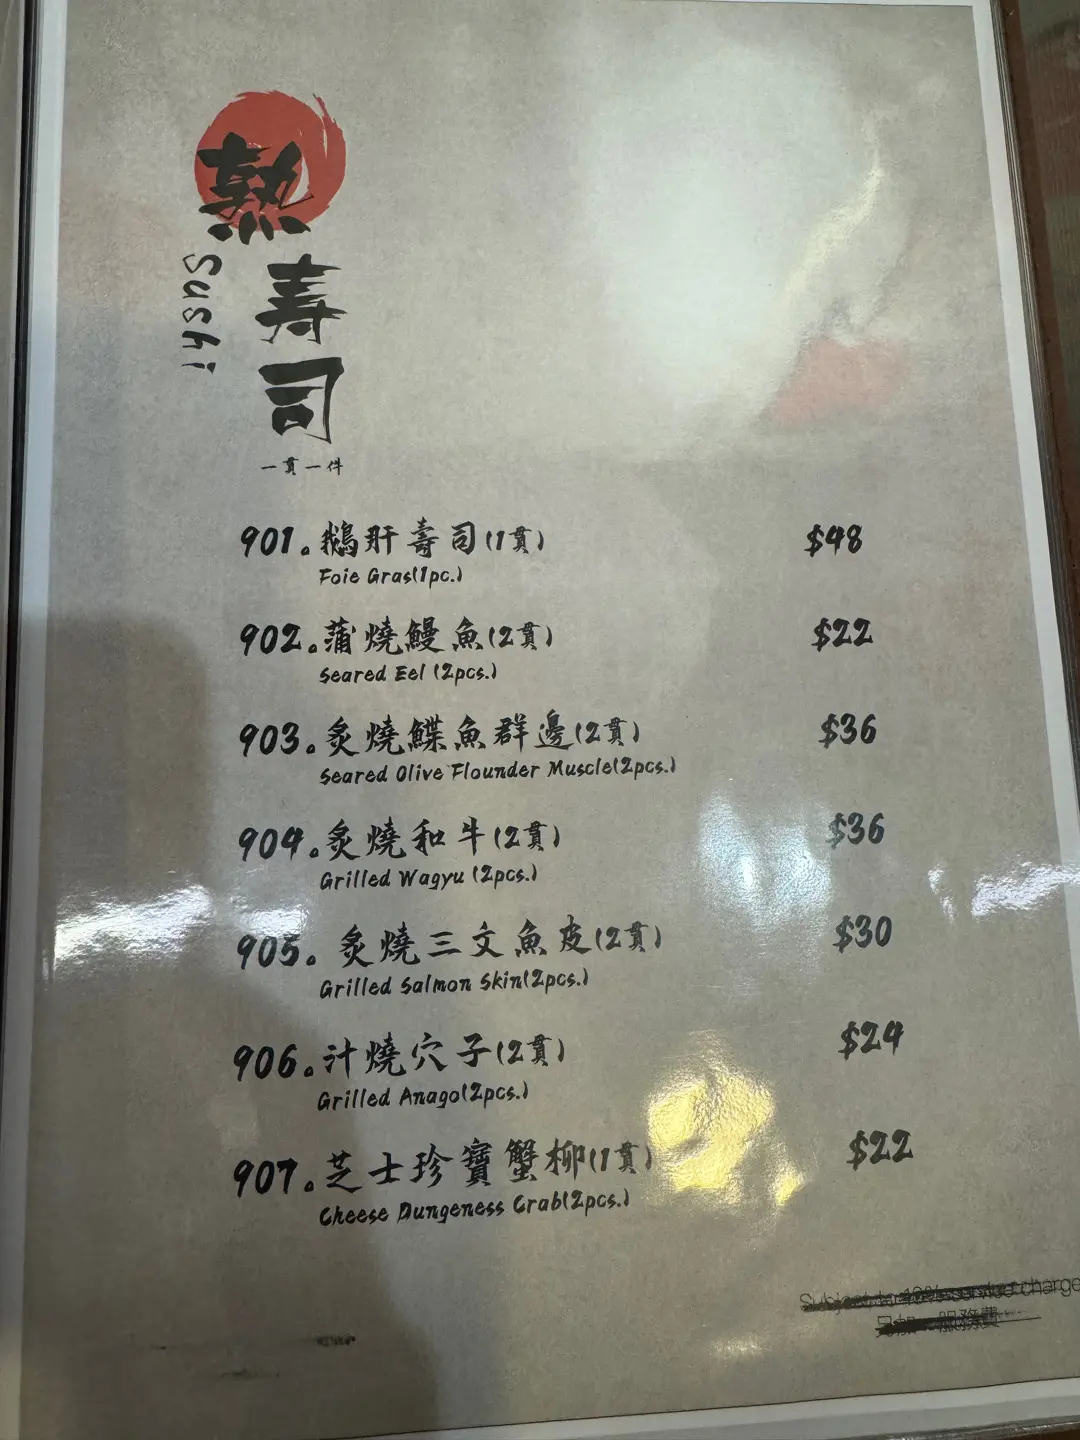 熱壽司
Sushi
一貫一件
901.鵝肝壽司(1貫) $48
Foie Gras(1pc.)
902.蒲燒鰻魚(2貫) $22
Seared Eel (2pcs.)
903.炙燒鰈魚群邊(2貫) $36
Seared Olive Flounder Muscle(2pcs.)
904.炙燒和牛(2貫) $36
Grilled Wagyu (2pcs.)
905.炙燒三文魚皮(2貫) $30
Grilled Salmon Skin(2pcs.)
906.汁燒穴子(2貫) $24
Grilled Anago(2pcs.)
907.芝士珍寶蟹柳(1貫) $22
Cheese Dungeness Crab(2pcs.)
Subject to 10% service charge
另加一服務費